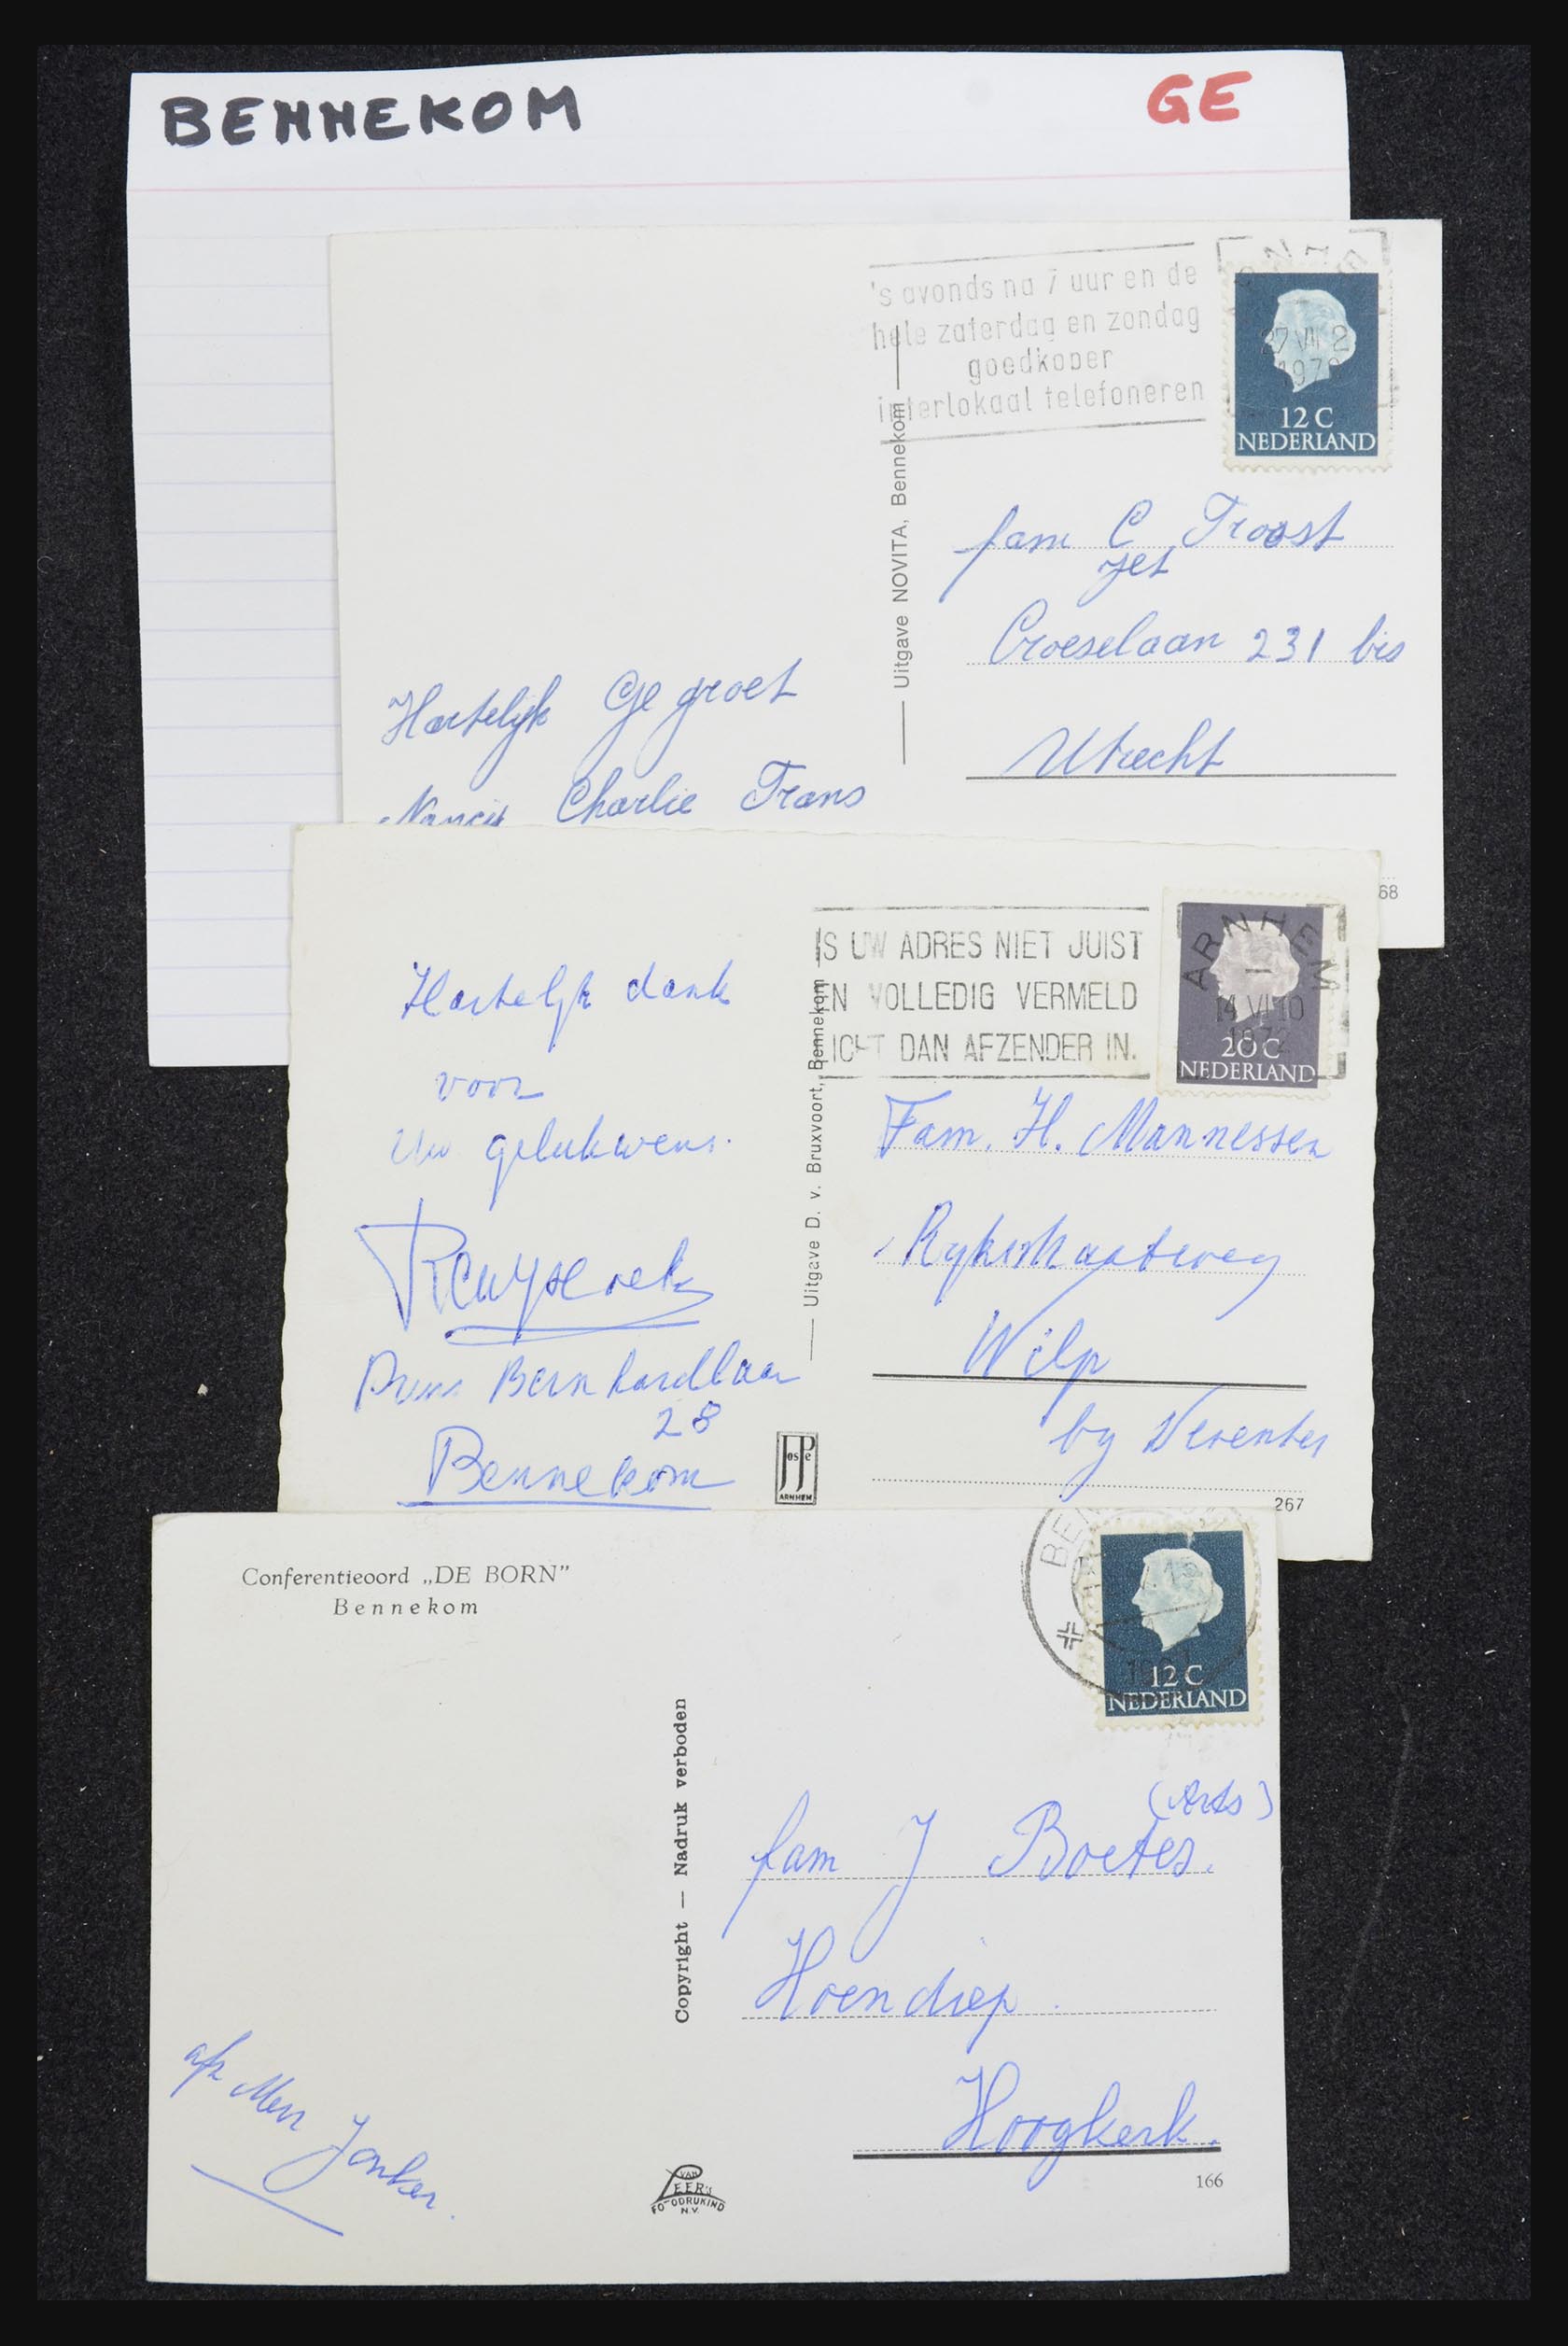 BENNEKOM
GE
's avonds na 7 uur en de
hele zaterdag en zondag
goedkoper
interlokaal telefoneren
27 VII 2
197
12 C
NEDERLAND
Uitgave NOVITA, Bennekom
fam C Troost
Jet
Croeselaan 231 bis
Utrecht
Hartelijk Gegroet
Nancy Charlie Frans
68
IS UW ADRES NIET JUIST
EN VOLLEDIG VERMELD
LICHT DAN AFZENDER IN.
ARNHEM
14 VI 10
20 C
NEDERLAND
Hartelijk dank
voor
Uw gelukwens.
Prins Bernhardlaan
28
Bennekom
Uitgave D. v. Bruxvoort, Bennekom
Fam. H. Mannessen
Rijksstraatweg
Wilp
by Deventer
JosPe
ARNHEM
267
Conferentieoord „DE BORN”
Bennekom
BE
12 C
NEDERLAND
Copyright — Nadruk verboden
(Arts)
fam J Boetes.
Hoendiep.
Hoogkerk.
afz Mevr Jonker.
VAN
LEER'S
FOTODRUKIND
N.V.
166